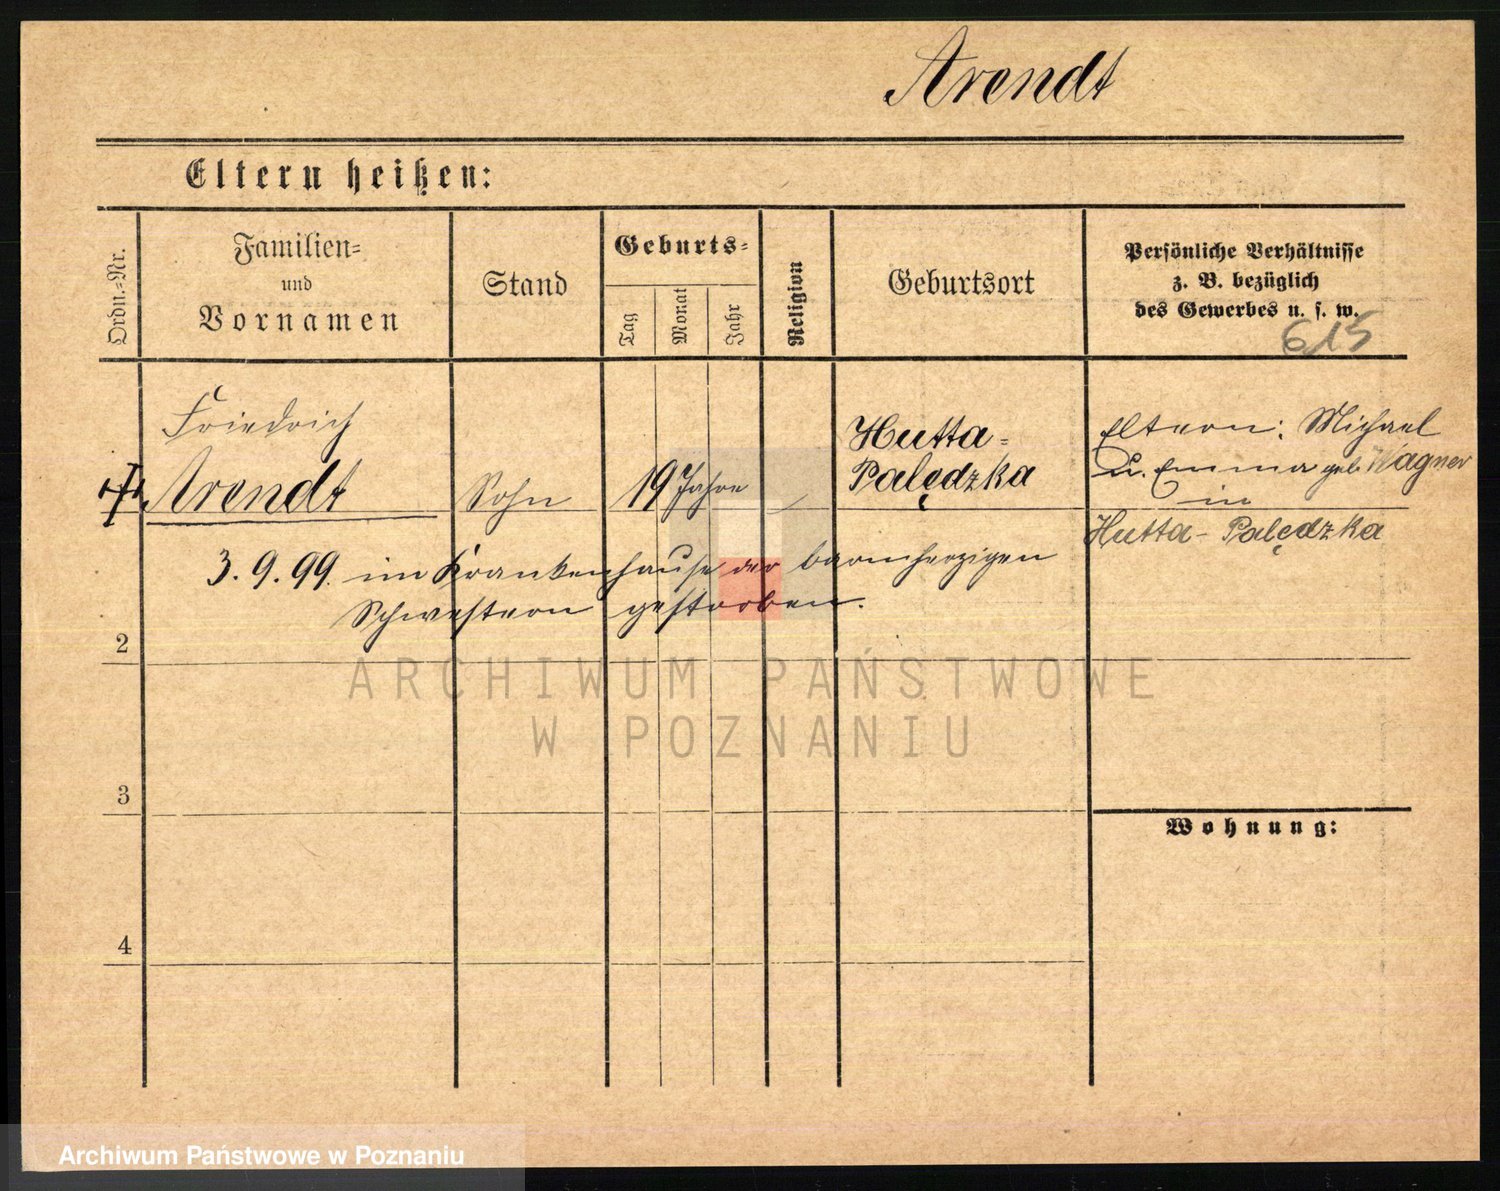 Arendt
Eltern heißen:
Ordn.-Nr.
Familien-
und
Vornamen
Stand
Geburts-
Tag
Monat
Jahr
Religion
Geburtsort
Persönliche Verhältnisse
z. B. bezüglich
des Gewerbes u. s. w.
615
Friedrich
Arendt
Sohn
19 Jahre
Hutta-
Palędzka
Eltern: Michael
u. Emma geb. Wagner
in
Hutta-Palędzka
3.9.99. im Krankenhause der barmherzigen
Schwestern gestorben.
2
3
4
Wohnung:
ARCHIWUM PAŃSTWOWE
W POZNANIU
Archiwum Państwowe w Poznaniu